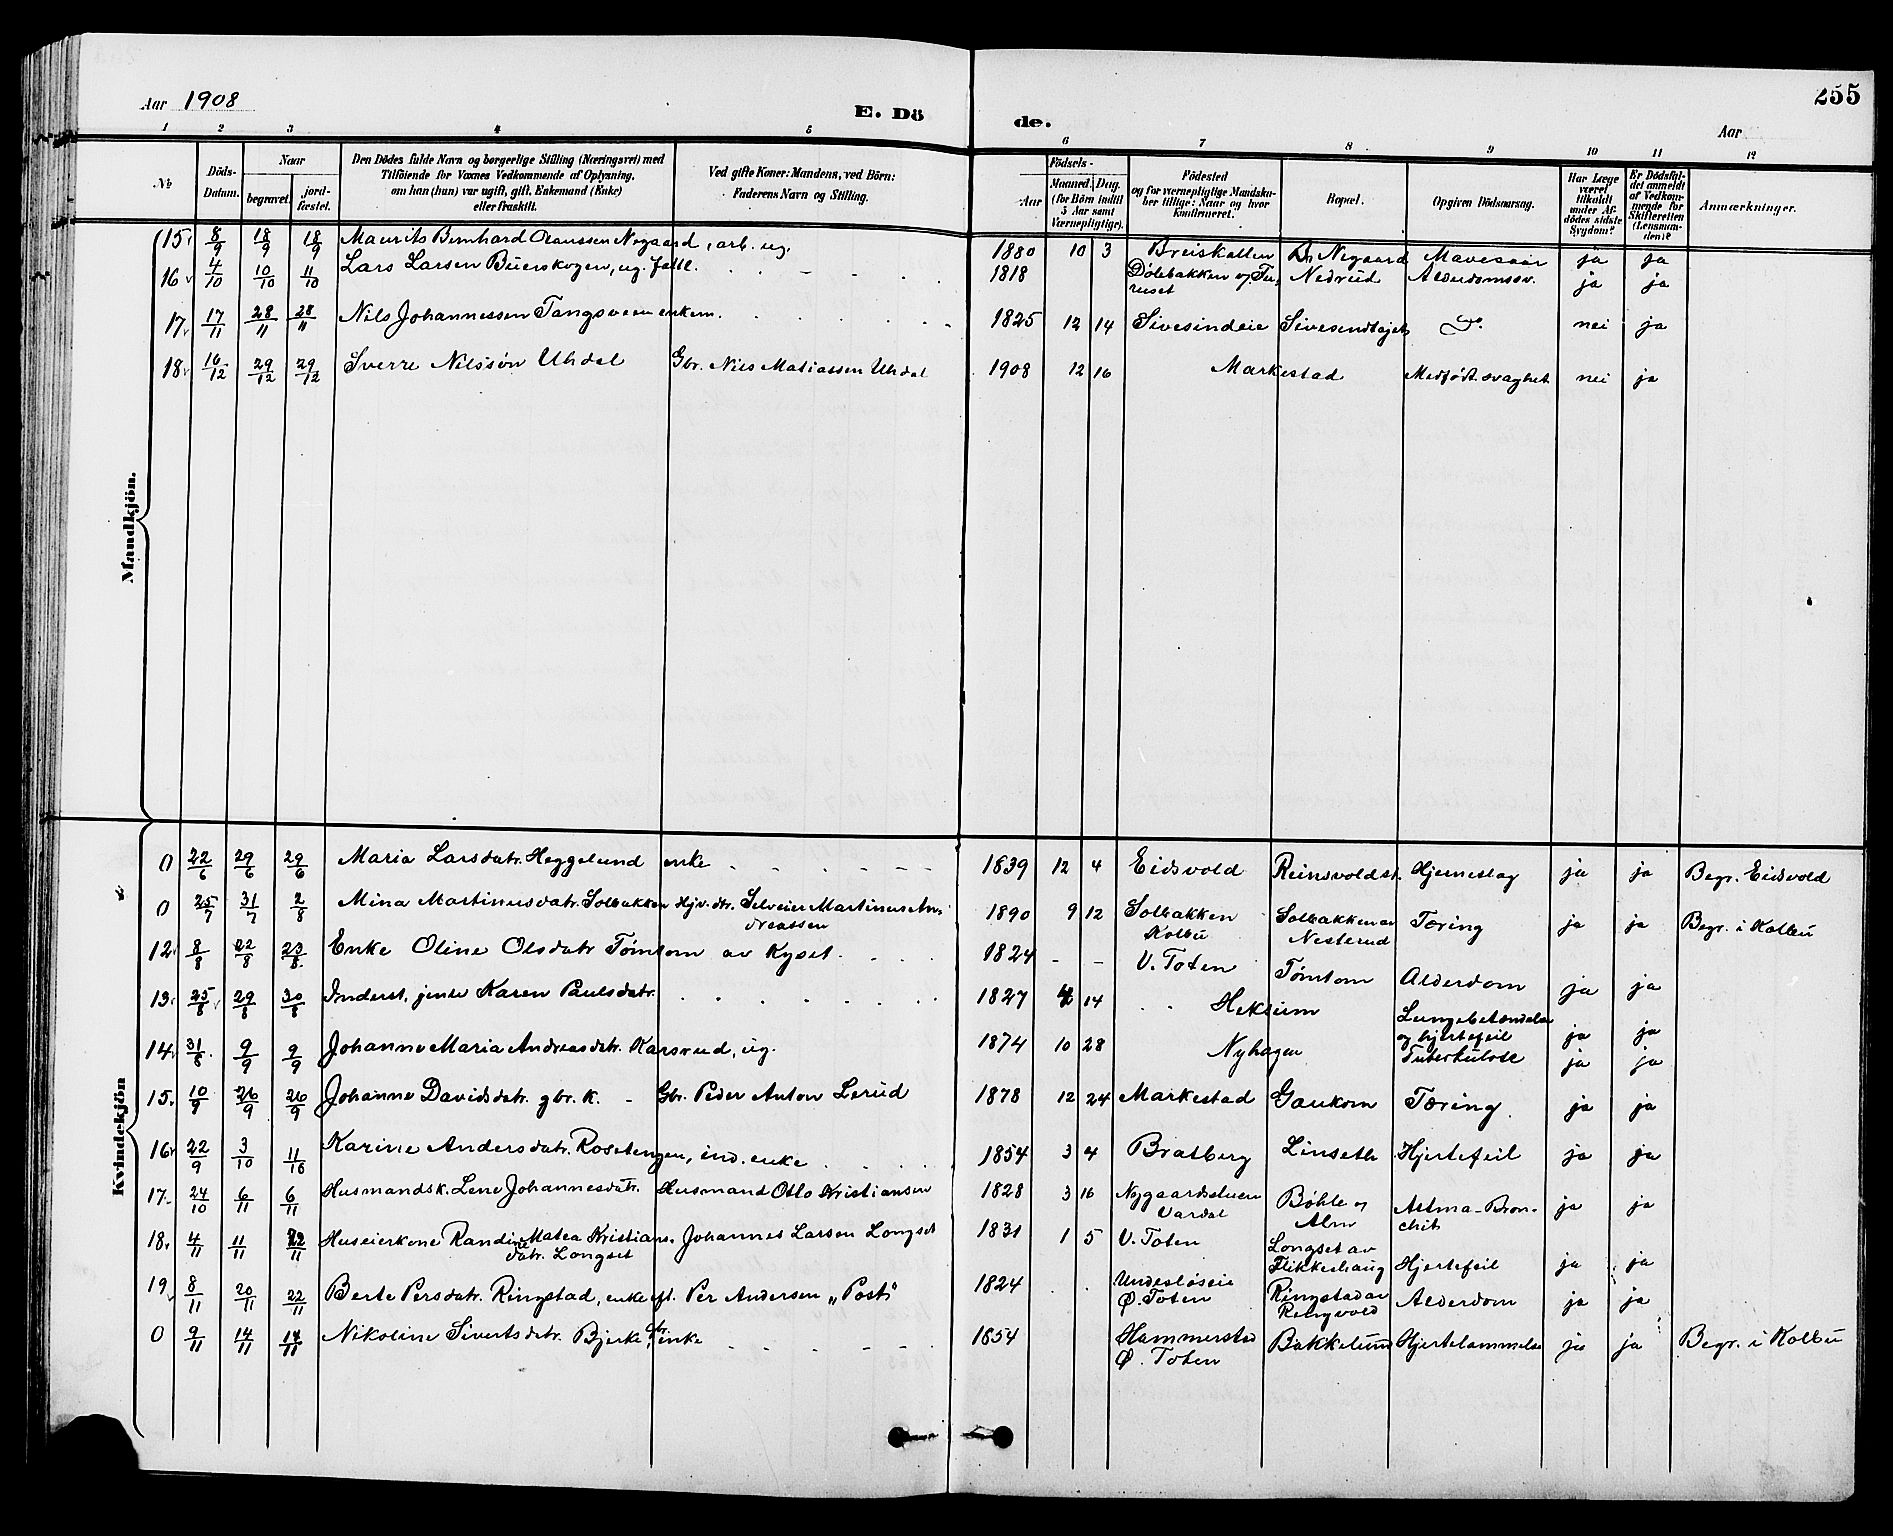 Aar 1908
E. Dö
de.
255
Aar
1 2 3 4 5 6 7 8 9 10 11 12
№
Döds-Datum.
Naar
begravet.
jord-fæstet.
Den Dödes fulde Navn og borgerlige Stilling (Næringsvei) med Tilföiende for Voxnes Vedkommende af Oplysning, om han (hun) var ugift, gift, Enkemand (Enke) eller fraskilt.
Ved gifte Koner: Mandens, ved Börn: Faderens Navn og Stilling.
Födsels-
Aar
Maaned. Dag. (for Börn indtil 5 Aar samt Værnepligtige).
Födested og for værnepligtige Mandskaber tillige: Naar og hvor Konfirmeret.
Bopæl.
Opgiven Dödsaarsag.
Har Læge været tilkaldt under Afdödes sidste Sygdom?
Er Dödsfaldet anmeldt af Vedkommende for Skifteretten (Lensmanden)?
Anmærkninger.
Mandkjön.
15 8/9 18/9 18/9 Maurits Bernhard Olaussen Negaard, arb. ug. 1880 10 3 Breiskallen Negaard Mavesaar ja ja
16 4/10 10/10 11/10 Lars Larsen Buerskogen, ug. fattl. 1818 Dølebakken Nedrud Alderdomssv. ja ja
17 17/11 28/11 28/11 Nils Johannessen Tangsveen enkem. 1825 12 14 Sivesindeie Sivesindlajet Do. nei ja
18 16/12 29/12 29/12 Sverre Nilssøn Uhdal Gbr. Nils Matiassen Uhdal 1908 12 16 Markestad Medfødt svaghet nei ja
Kvindekjön
0 22/6 29/6 29/6 Maria Larsdatr. Heggelund enke 1839 12 4 Eidsvold Reinsvoldst. Hjerneslag ja ja Begr. Eidsvold
0 25/7 31/7 2/8 Mina Martinusdatr. Solbakken Hjv. dtr. Selveier Martinus Andreassen 1890 9 12 Solbakken Kolbu Solbakken av Nesterud Tæring ja ja Begr. i Kolbu
12 8/8 22/8 23/8 Enke Oline Olsdatr Tømtom av Kyset. 1824 - - V. Toten Tømtom Alderdom ja ja
13 25/8 29/8 30/8 Inderst, jente Karen Paulsdatr. 1827 4 14 Heksum Lungebetændelse og hjertefeil ja ja
14 31/8 9/9 9/9 Johanne Maria Andreasdatr. Karsrud, ug. 1874 10 28 Nyhagen Tuberkulose ja ja
15 10/9 26/9 26/9 Johanne Davidsdatr. gbr. k. - Gbr. Peder Anton Lerud 1878 12 24 Markestad Gaukom Tæring. ja ja
16 22/9 3/10 11/10 Karine Andersdatr. Rosetengen, ind. enke 1854 3 4 Bratberg Linseth Hjertefeil ja ja
17 24/10 6/11 6/11 Husmandsk. Lene Johannesdatr. Husmand Otto Kristiansen 1828 3 16 Nygaardstuen Vardal Bøhle og Alm Astma-Bronchit ja ja
18 4/11 11/11 22/11 Huseierkone Randine Matea Kristiansdatr. Longset Johannes Larsen Longset 1831 1 5 V. Toten Longset av Flikkeshaug Hjertefeil ja ja
19 8/11 20/11 22/11 Berte Persdatr. Ringstad, enke eft. Per Andersen „Post“ 1824 Ø. Toten Ringstad av Ringvold Alderdom ja ja
0 9/11 14/11 14/11 Nikoline Sivertsdatr. Bjerke, gbr. enke 1854 Hammerstad Ø. Toten Bakkelund Hjertelammelse ja ja Begr. i Kolbu